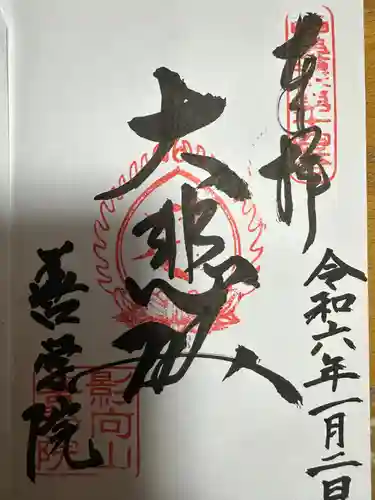 奉拝
令和六年一月二日
大悲殿
善学院
影向山